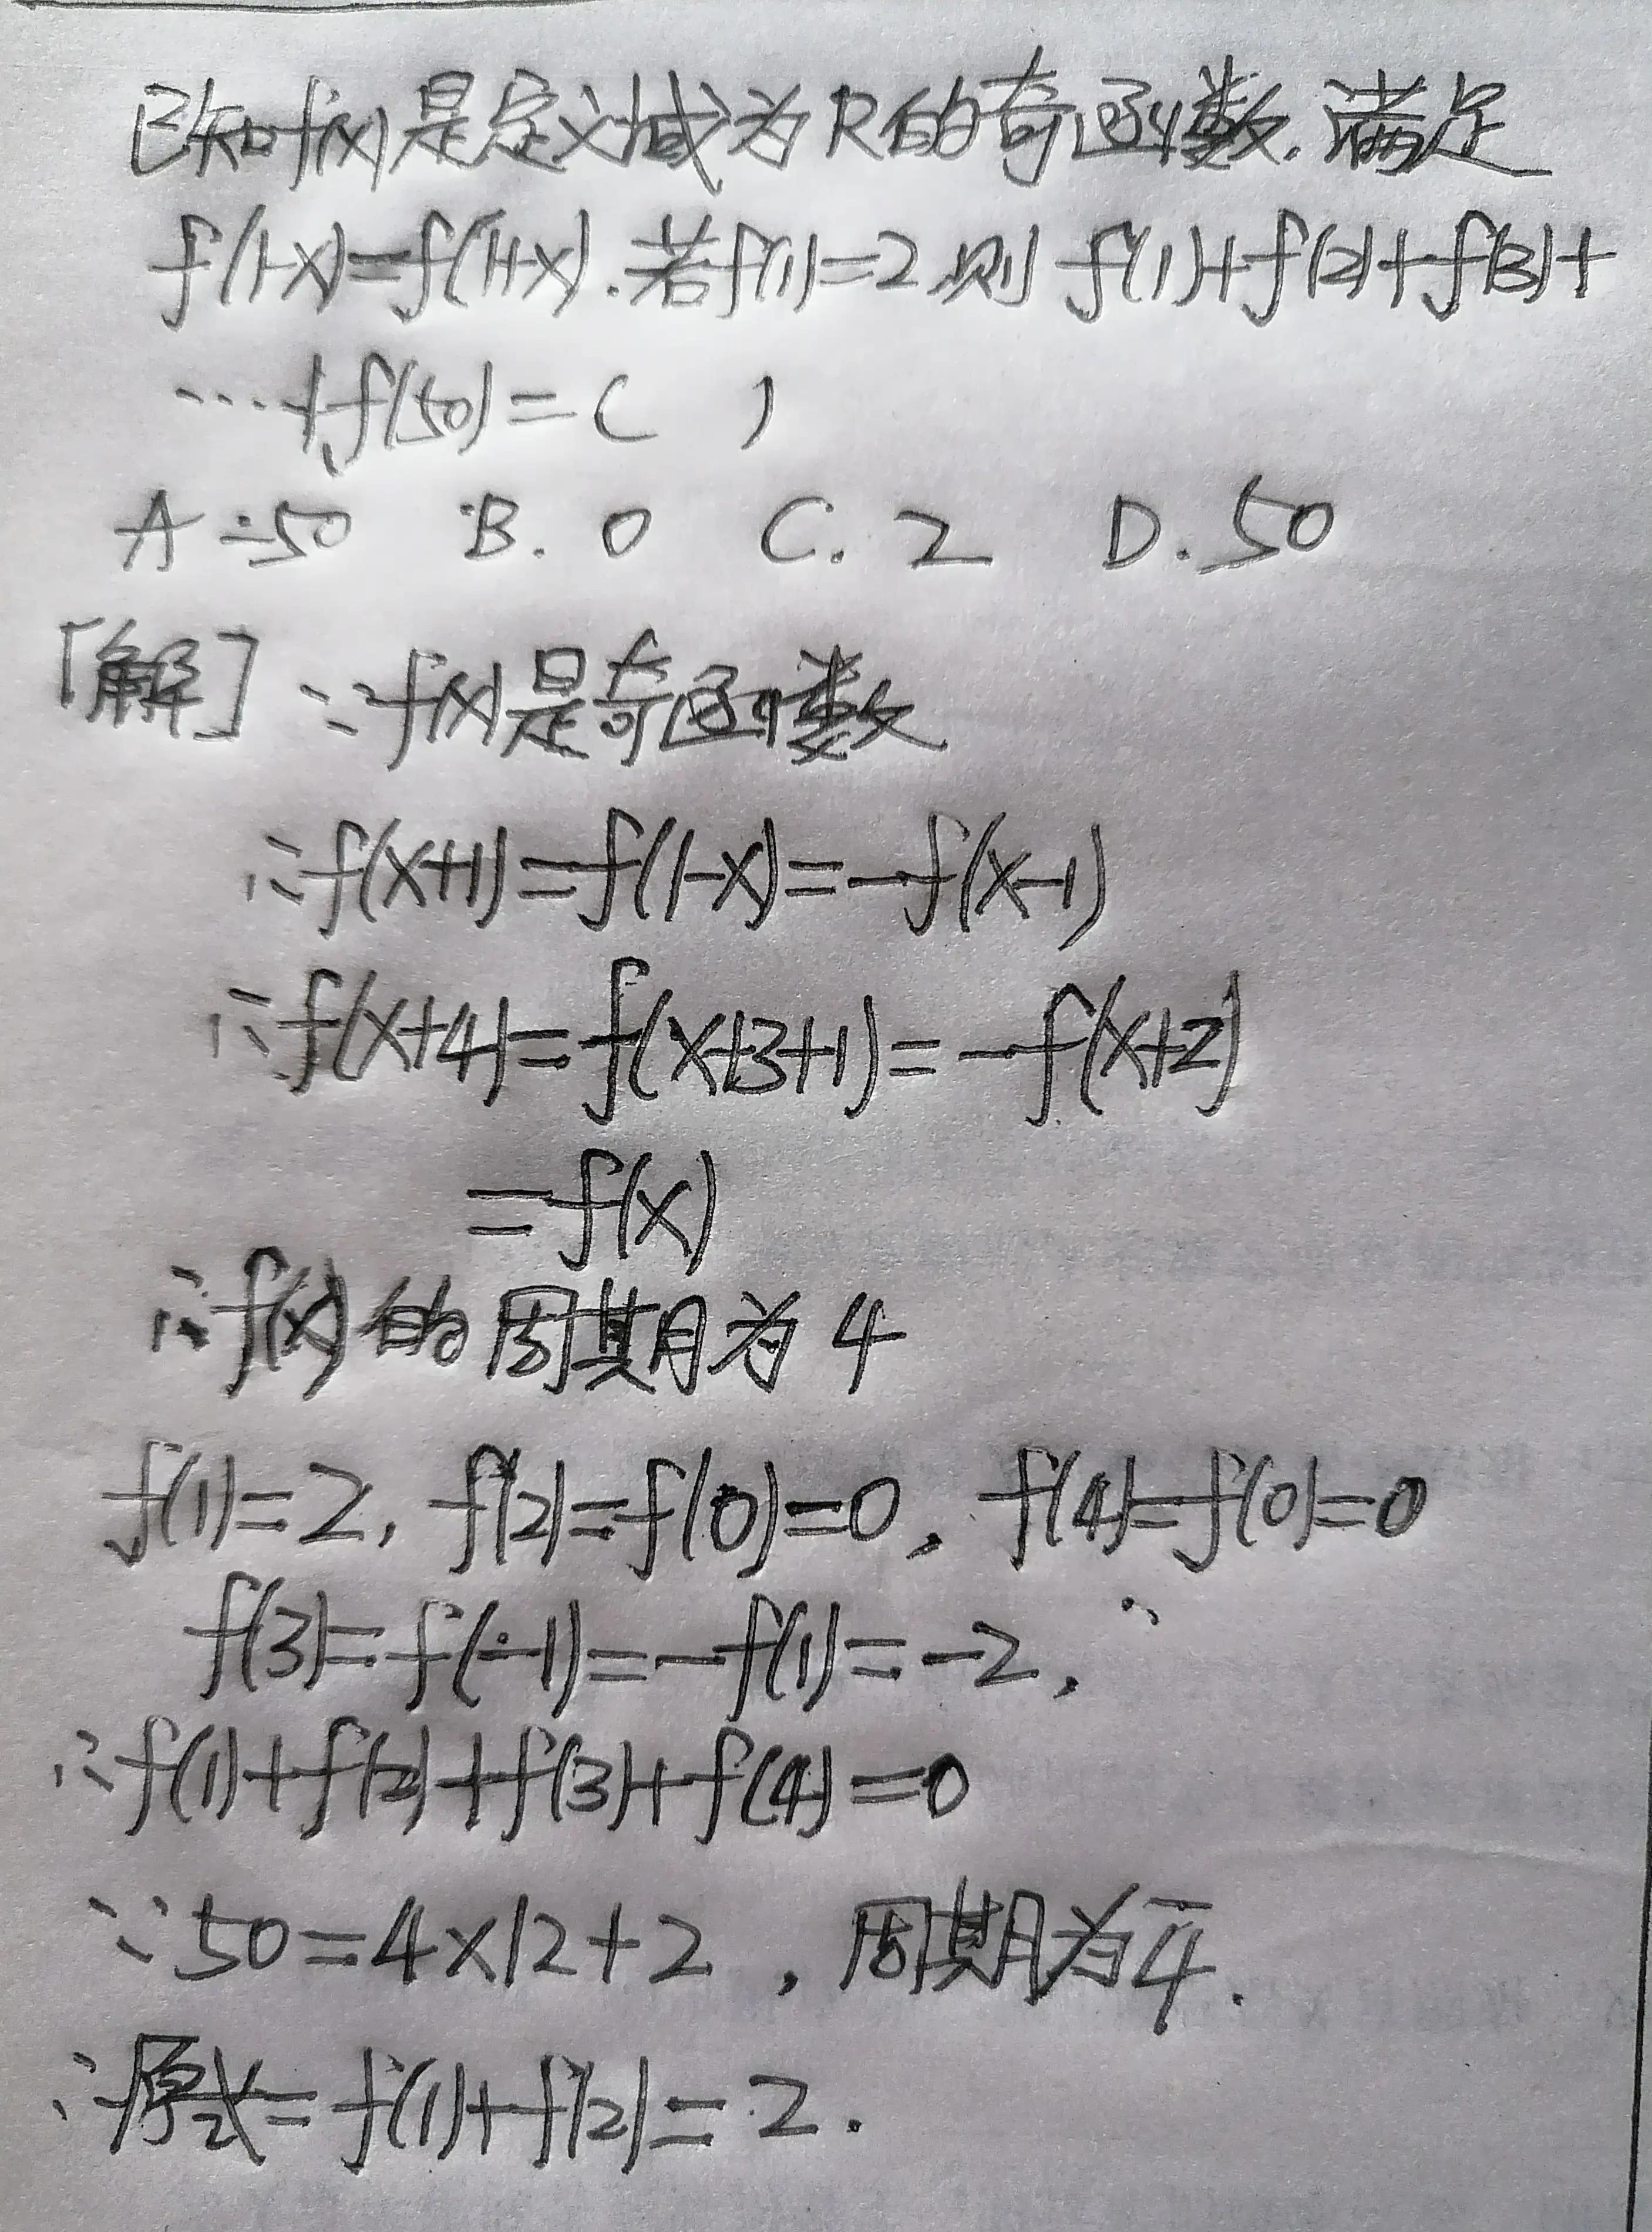 已知f(x)是定义域为R的奇函数.满足
f(1-x)=f(1+x).若f(1)=2,则 f(1)+f(2)+f(3)+
…+f(50)=( )
A -50 B. 0 C. 2 D. 50
[解] ∵f(x)是奇函数
∴f(x+1)=f(1-x)=-f(x-1)
∴f(x+4)=f(x+3+1)=-f(x+2)
=f(x)
∴f(x)的周期为4
f(1)=2, f(2)=f(0)=0, f(4)=f(0)=0
f(3)=f(-1)=-f(1)=-2,
∴f(1)+f(2)+f(3)+f(4)=0
∵50=4×12+2 , 周期为4.
∴原式=f(1)+f(2)=2.